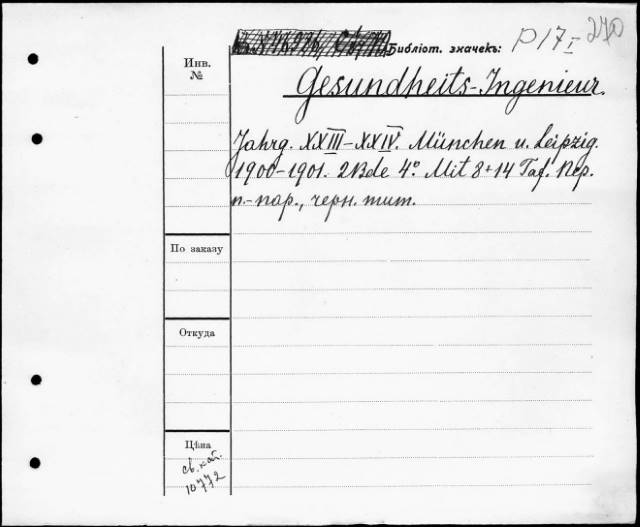 Библіот. значекъ: P17 I-270
Инв.
№
Gesundheits-Ingenieur.
Jahrg. XXIII-XXIV. München u. Leipzig.
1900-1901. 2 Bde 4º. Mit 8+14 Taf. Пер.
п.-пар., черн. тит.
По заказу
Откуда
Цѣна
св. кат.
10772